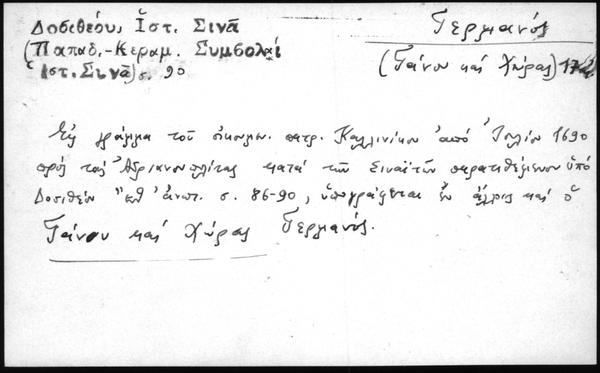 Δοσιθέου, Ἱστ. Σινᾶ
(Παπαδ.-Κεραμ. Συμβολαί
Ἱστ. Σινᾶ) σ. 90
Γερμανός
(Γάνου καὶ Χώρας)
Εἰς γράμμα τοῦ οἰκουμ. πατρ. Καλλινίκου ἀπό Ἰουλίου 1690
πρός τούς Ἀδριανουπολίτας κατά τῶν Σιναϊτῶν παρατιθέμενον ὑπό
Δοσιθέου ἔνθ' ἀνωτ. σ. 86-90, ὑπογράφεται ἐν ἄλλοις καὶ ὁ
Γάνου καὶ Χώρας Γερμανός.